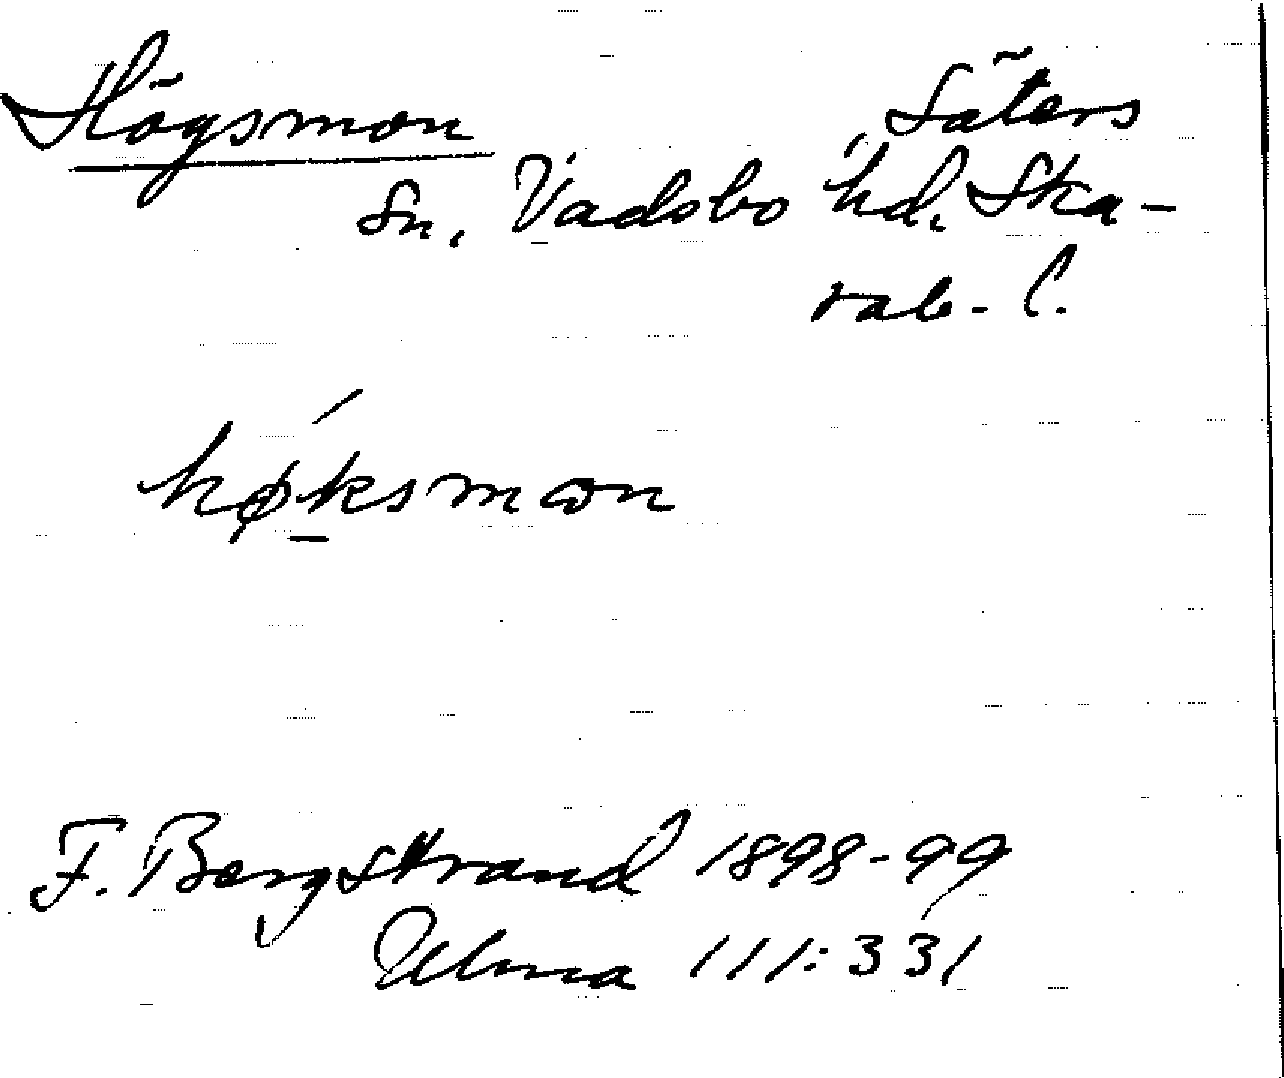 Högsmon Säters
sn. Vadsbo hd. Ska-
rab. l.
høksmɷn
F. Bergstrand 1898-99
Ulma 111:331